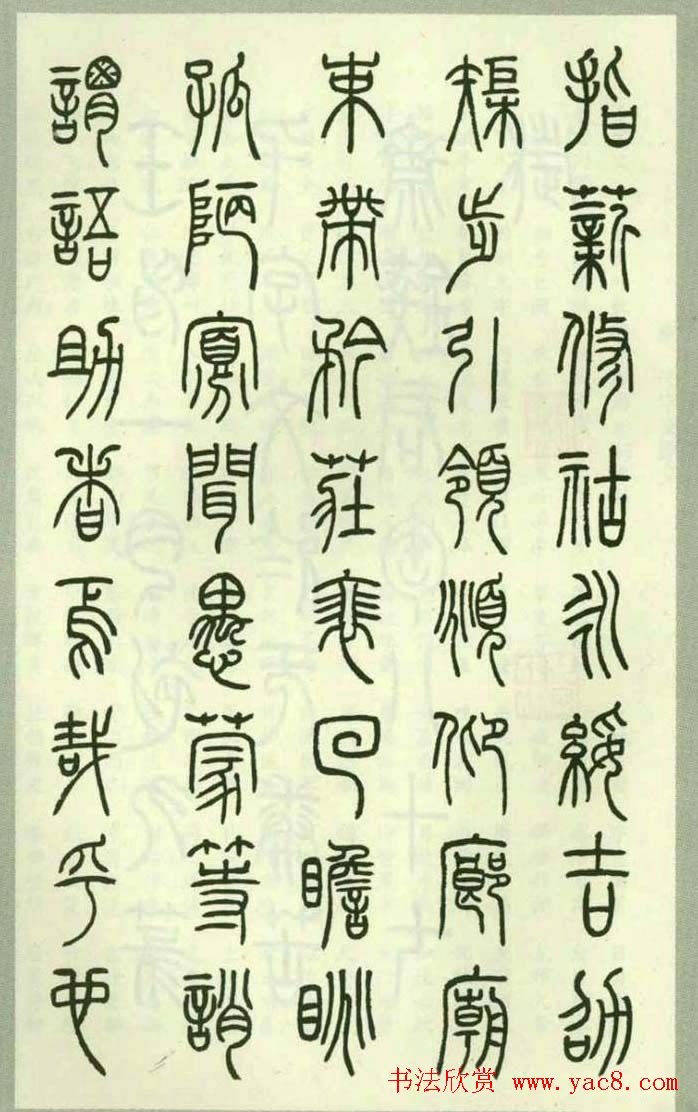 指薪修祜永綏吉劭
矩步引領俯仰廊廟
束帶矜莊裵回瞻眺
孤陋寡聞愚蒙等誚
謂語助者焉哉乎也
书法欣赏 www.yac8.com